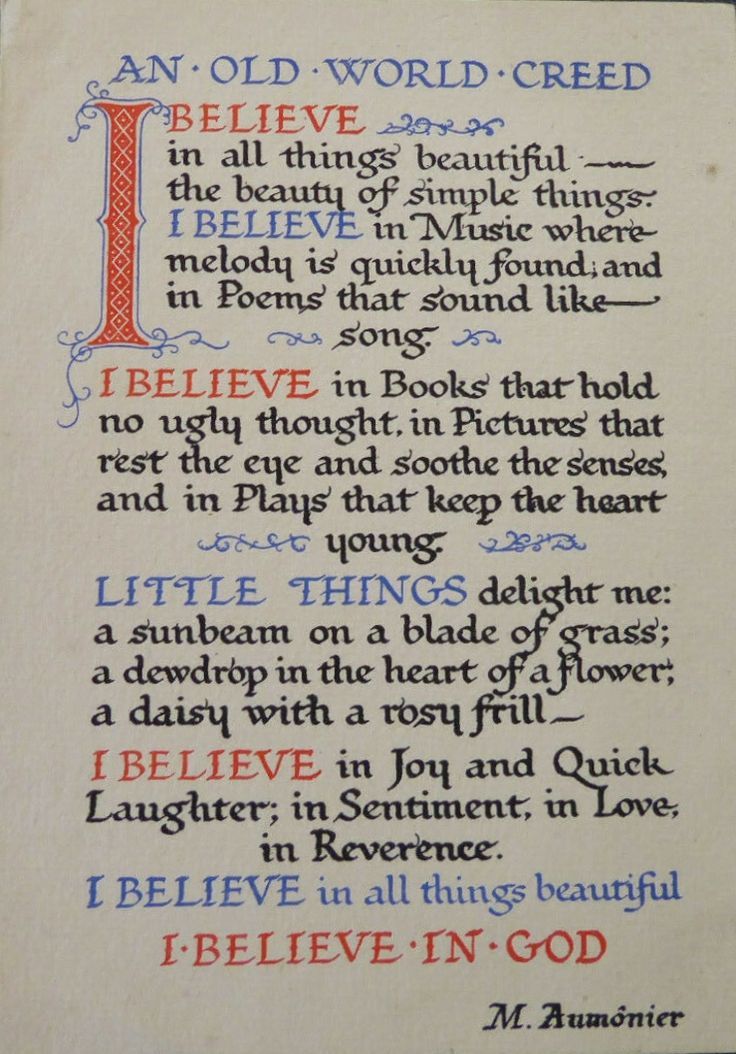 AN · OLD · WORLD · CREED
I BELIEVE
in all things beautiful —
the beauty of simple things.
I BELIEVE in Music where
melody is quickly found; and
in Poems that sound like
song.
I BELIEVE in Books that hold
no ugly thought, in Pictures that
rest the eye and soothe the senses,
and in Plays that keep the heart
young.
LITTLE THINGS delight me:
a sunbeam on a blade of grass;
a dewdrop in the heart of a flower;
a daisy with a rosy frill —
I BELIEVE in Joy and Quick
Laughter; in Sentiment, in Love,
in Reverence.
I BELIEVE in all things beautiful
I · BELIEVE · IN · GOD
M. Aumônier